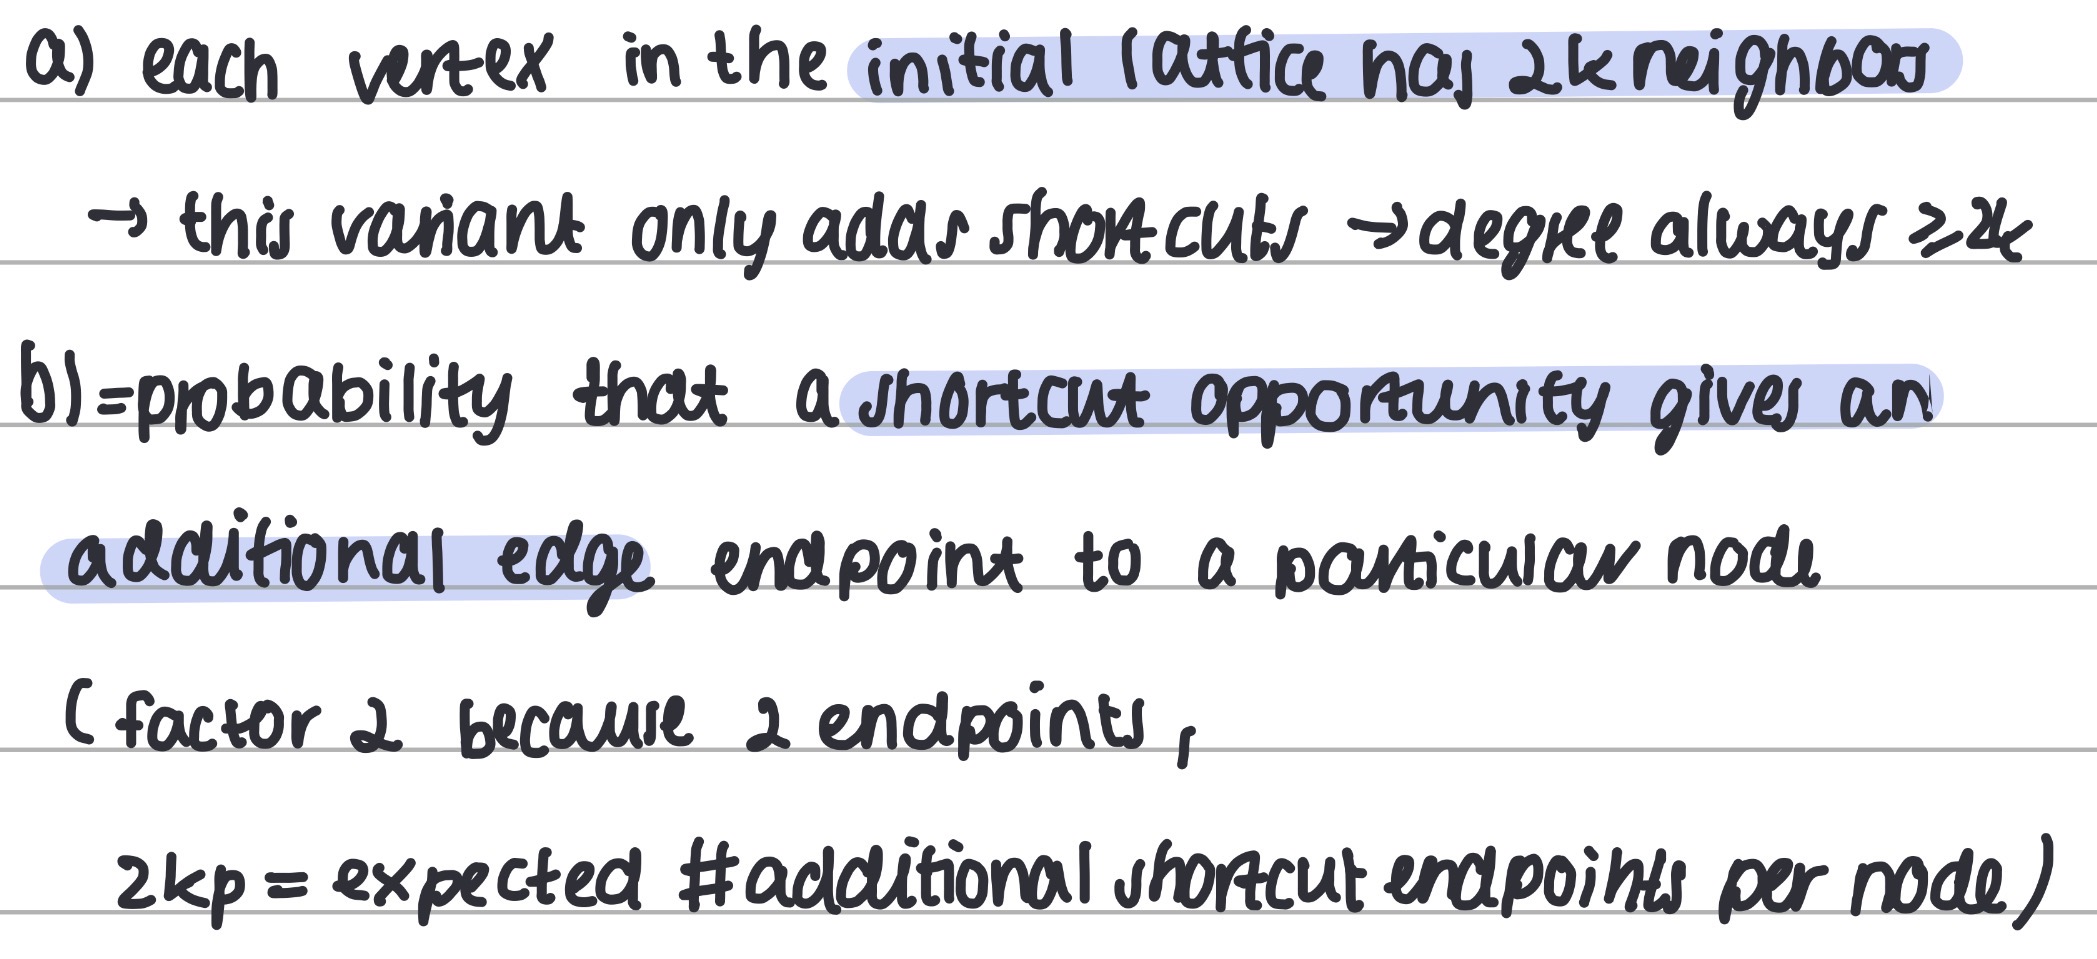 a) each vertex in the initial lattice has 2k neighbors
→ this variant only adds shortcuts → degree always ≥2k
b) = probability that a shortcut opportunity gives an
additional edge endpoint to a particular node
(factor 2 because 2 endpoints,
2kp = expected #additional shortcut endpoints per node)